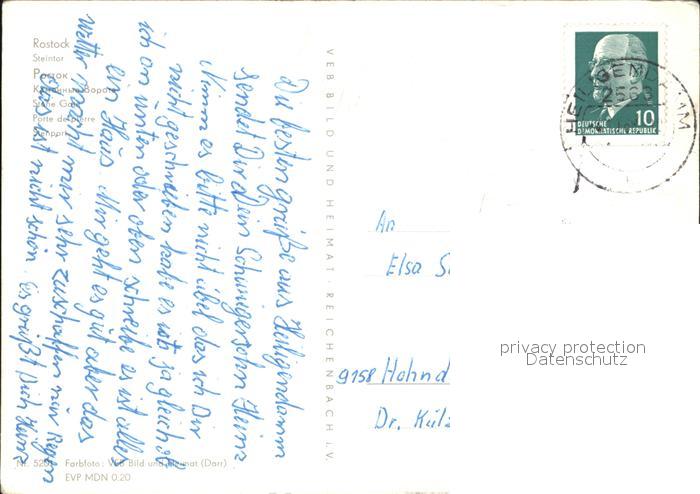 Rostock
Steintor
Росток
Stone Gate
Porte de pierre
Die besten grüße aus Heiligendamm
sendet Dir Dein Schwiegersohn Heinz
Nimm es bitte nicht übel das ich Dir
nicht geschrieben habe es ist ja gleich ob
ich an unten oder oben schreibe es ist alles
ein Haus. Mir geht es gut aber das
wetter macht mir sehr zuschaffen nur Regen
das ist nicht schön. Es grüßt Dich Heinz
VEB BILD UND HEIMAT · REICHENBACH I. V.
Farbfoto: VEB Bild und Heimat (Darr)
EVP MDN 0.20
HEILIGENDAMM
10
DEUTSCHE
DEMOKRATISCHE REPUBLIK
An
Elsa
9158 Hohnd
Dr. Külz
privacy protection
Datenschutz